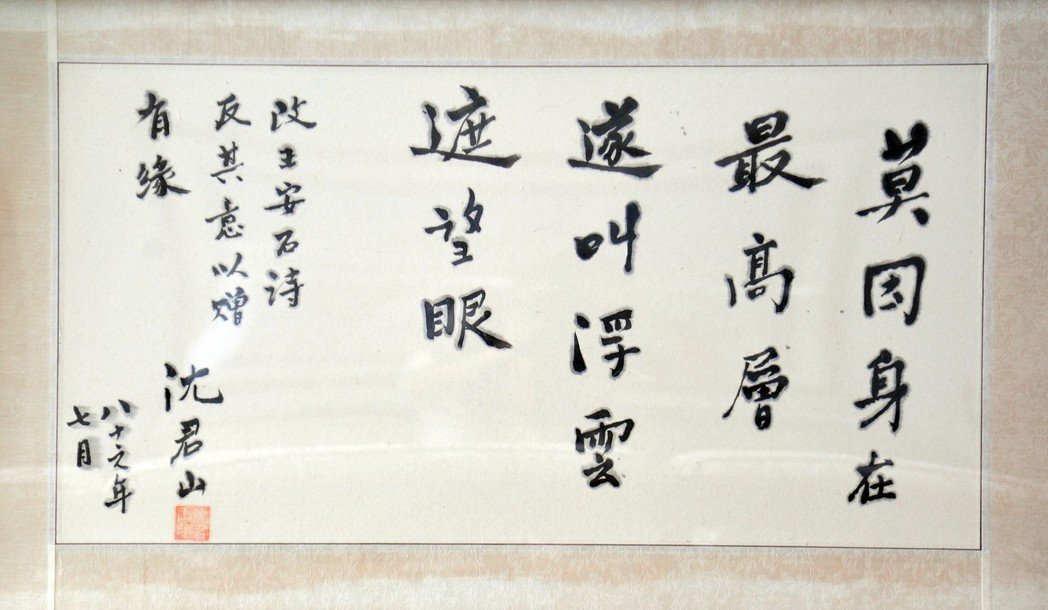 莫因身在
最高層
遂叫浮雲
遮望眼
改王安石诗
反其意以赠
有缘
沈君山
八十六年
七月